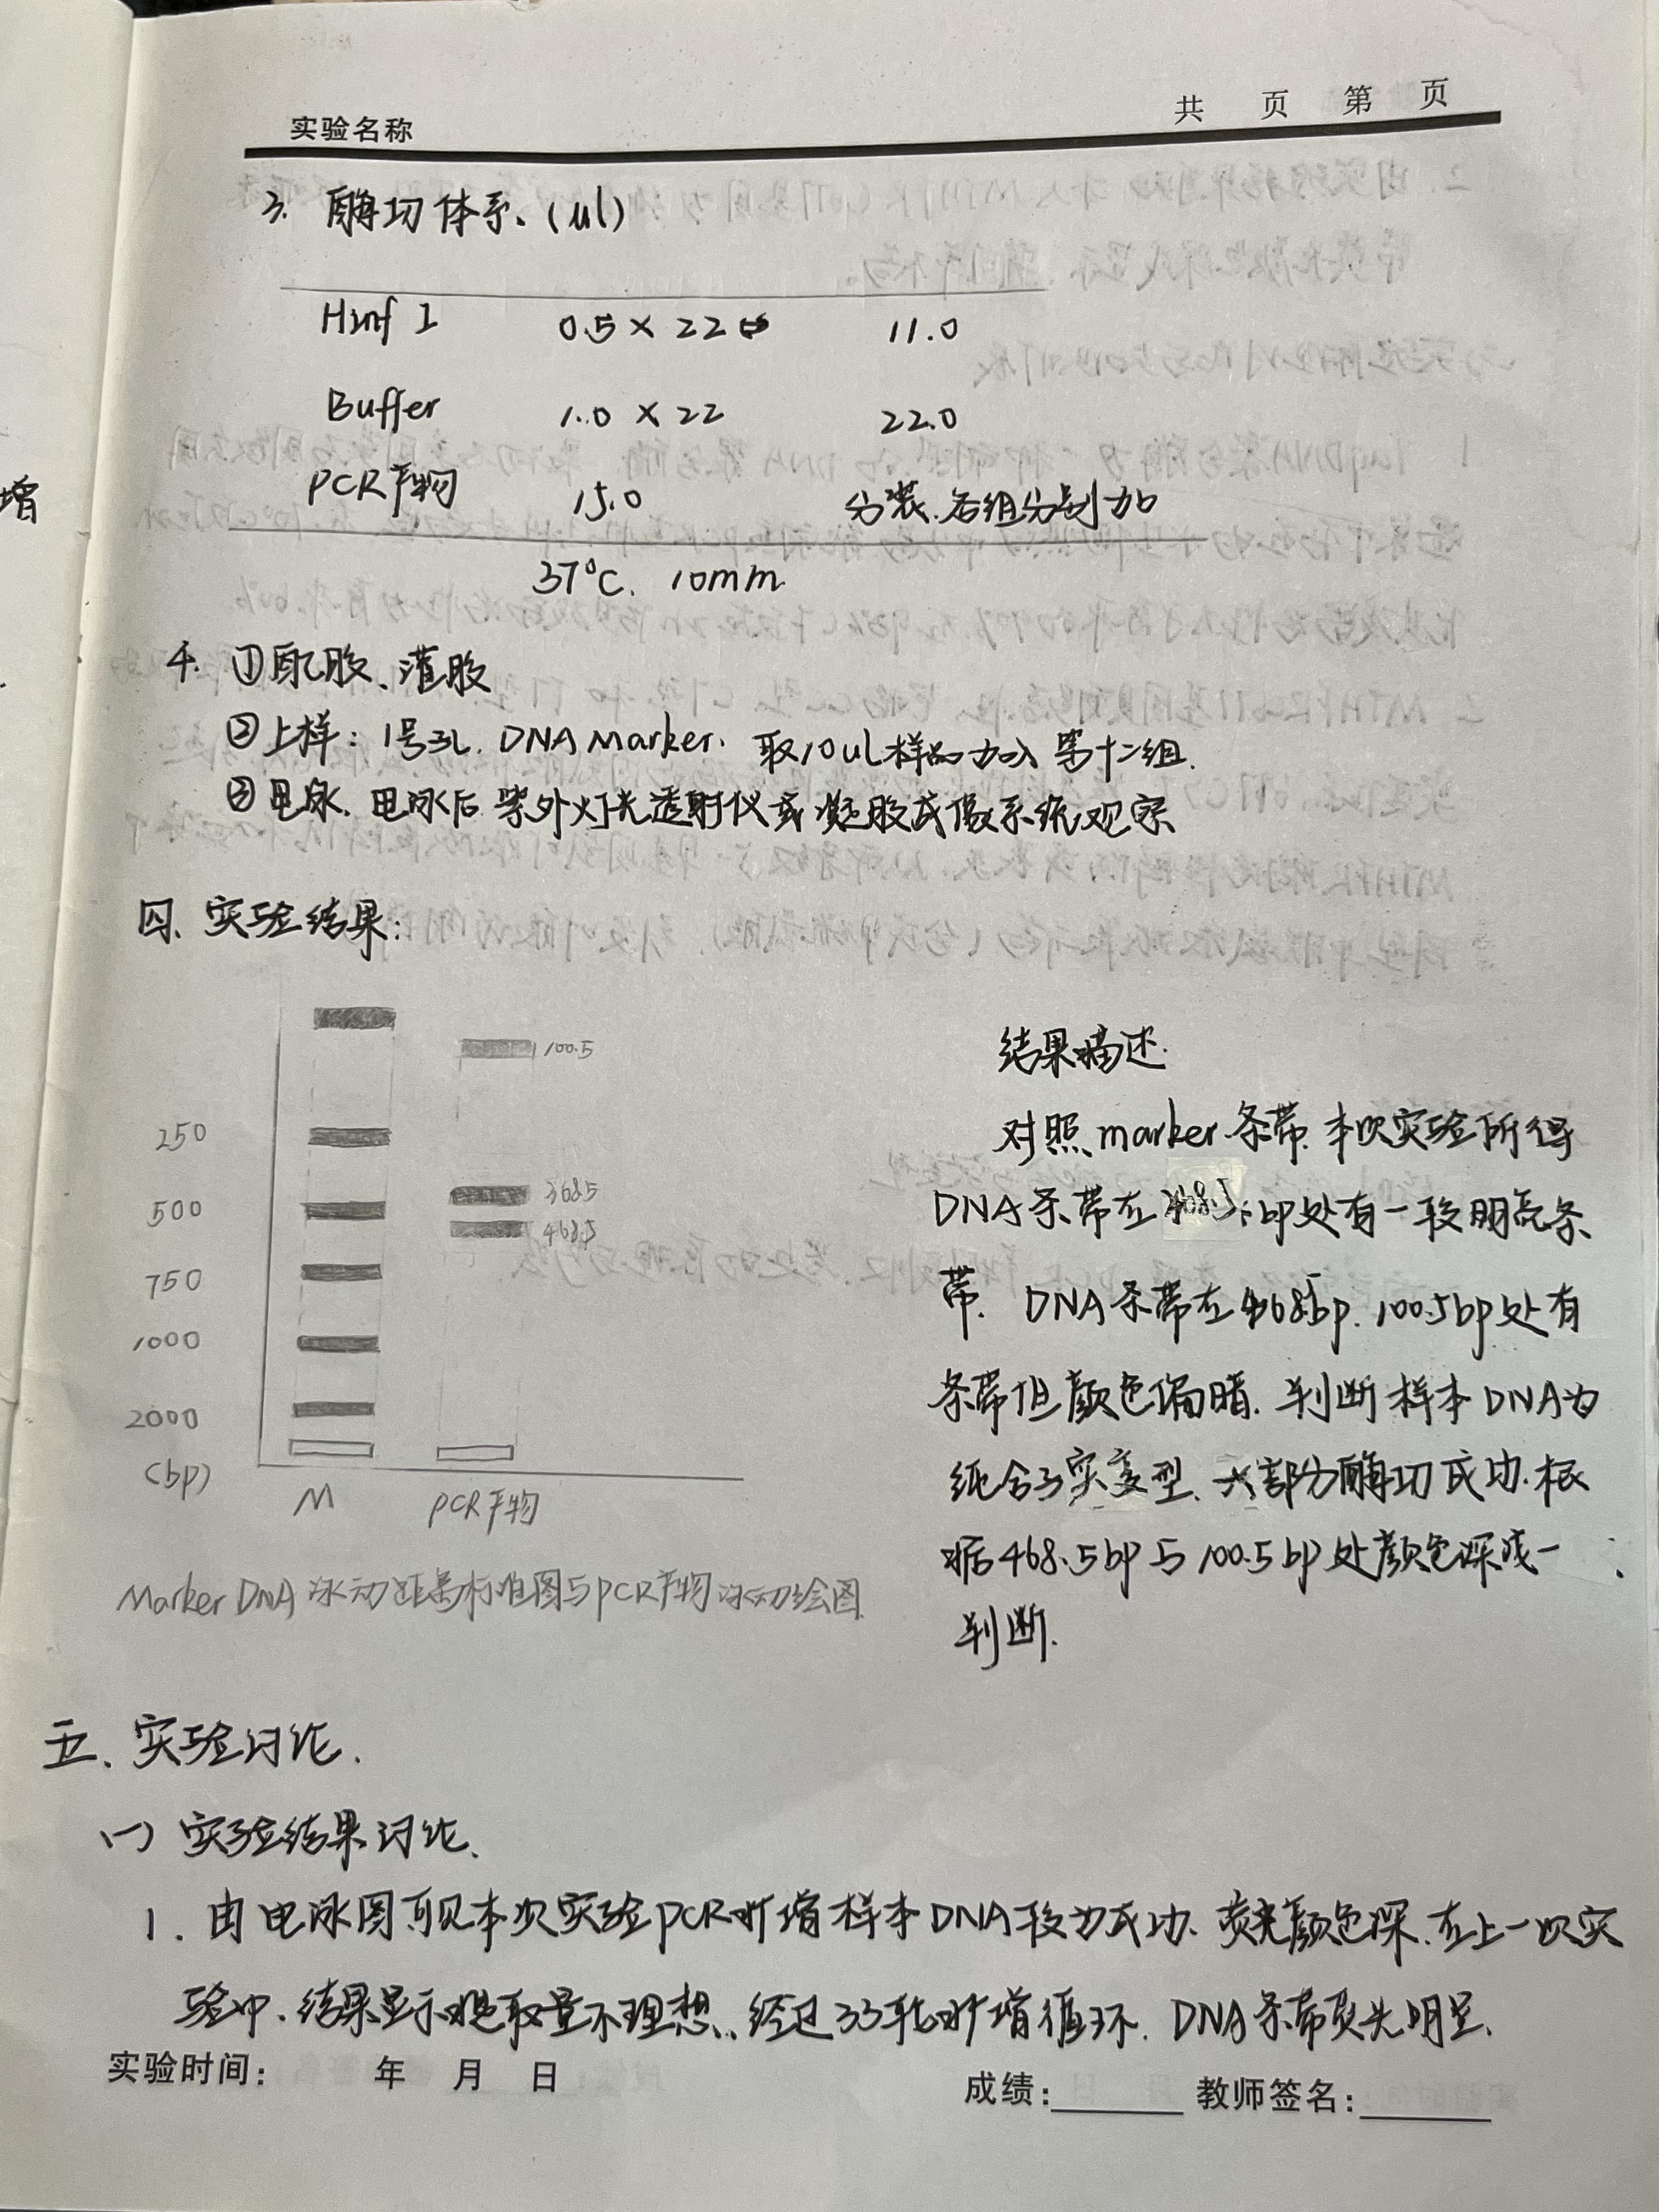 共 页 第 页
实验名称
3. 酶切体系.(ul)
Hinf I 0.5 × 22 11.0
Buffer 1.0 × 22 22.0
PCR产物 15.0 分装.各组分别加
37°C. 10min
4. ①配胶、灌胶
②上样: 1号孔. DNA Marker. 取10ul样品加入第十二组.
③电泳. 电泳后紫外灯光透射仪或凝胶成像系统观察
四. 实验结果:
100.5
250
368.5
500
468.5
750
1000
2000
(bp)
M PCR产物
Marker DNA泳动距离标准图与PCR产物泳动绘图.
结果描述.
对照marker条带.本次实验所得
DNA条带在368.5bp处有一较明亮条
带. DNA条带在468.5bp. 100.5bp处有
条带但颜色偏暗. 判断样本DNA为
纯合子突变型. 大部分酶切成功.根
据468.5bp与100.5bp处颜色深浅一
判断.
五、实验讨论.
(一) 实验结果讨论.
1. 由电泳图可见本次实验PCR扩增样本DNA较为成功. 荧光颜色深.在上一次实
验中.结果显示提取量不理想.经过33轮扩增循环. DNA条带荧光明显.
实验时间: 年 月 日
成绩: 教师签名:
增